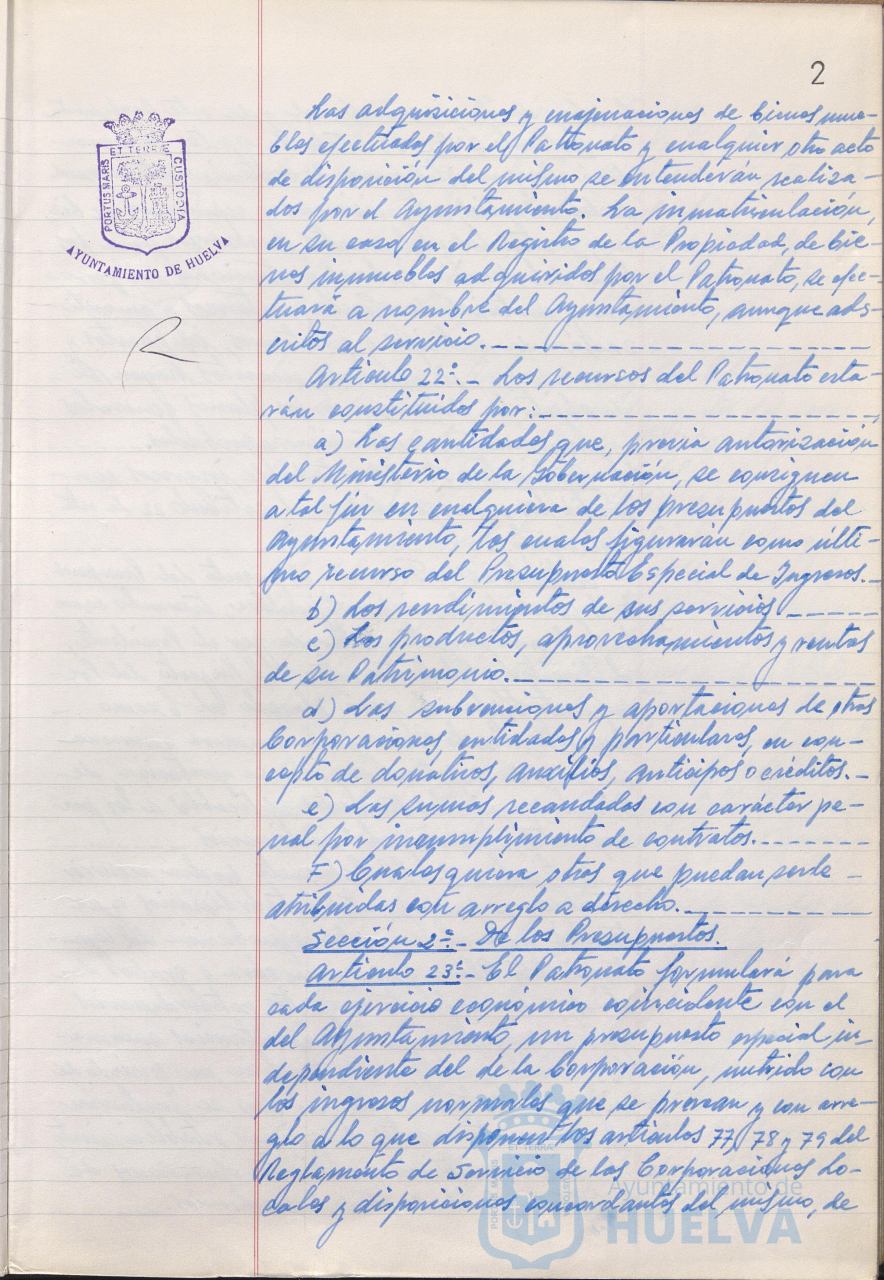 2
Las adquisiciones y enajenaciones de bienes mue-
bles efectuados por el Patronato y cualquier otro acto
de disposición del mismo se entenderán realiza-
dos por el Ayuntamiento. La inmatriculación,
en su caso, en el Registro de la Propiedad, de bie-
nes inmuebles adquiridos por el Patronato, se efec-
tuará a nombre del Ayuntamiento, aunque ads-
critos al servicio.
Artículo 22º.- Los recursos del Patronato esta-
rán constituidos por:
a) Las cantidades que, previa autorización
del Ministerio de la Gobernación, se consignen
a tal fin en cualquiera de los presupuestos del
Ayuntamiento, los cuales figurarán como últi-
mo recurso del Presupuesto Especial de Ingresos.-
b) Los rendimientos de sus servicios
c) Los productos, aprovechamientos y rentas
de su Patrimonio.
d) Las subvenciones y aportaciones de otras
Corporaciones, entidades y particulares, en con-
cepto de donativos, auxilios, anticipos o créditos.-
e) Las sumas recaudadas con carácter pe-
nal por incumplimiento de contratos.
F) Cualesquiera otros que puedan serle
atribuidas con arreglo a derecho.
Sección 2ª.- De los Presupuestos.
Artículo 23º.- El Patronato formulará para
cada ejercicio económico coincidente con el
del Ayuntamiento, un presupuesto especial, in-
dependiente del de la Corporación, nutrido con
los ingresos normales que se prevean y con arre-
glo a lo que disponen los artículos 77, 78 y 79 del
Reglamento de Servicio de las Corporaciones Lo-
cales y disposiciones concordantes del mismo, de
PORTUS MARIS ET TERRE CUSTODIA
AYUNTAMIENTO DE HUELVA
Ayuntamiento de
HUELVA